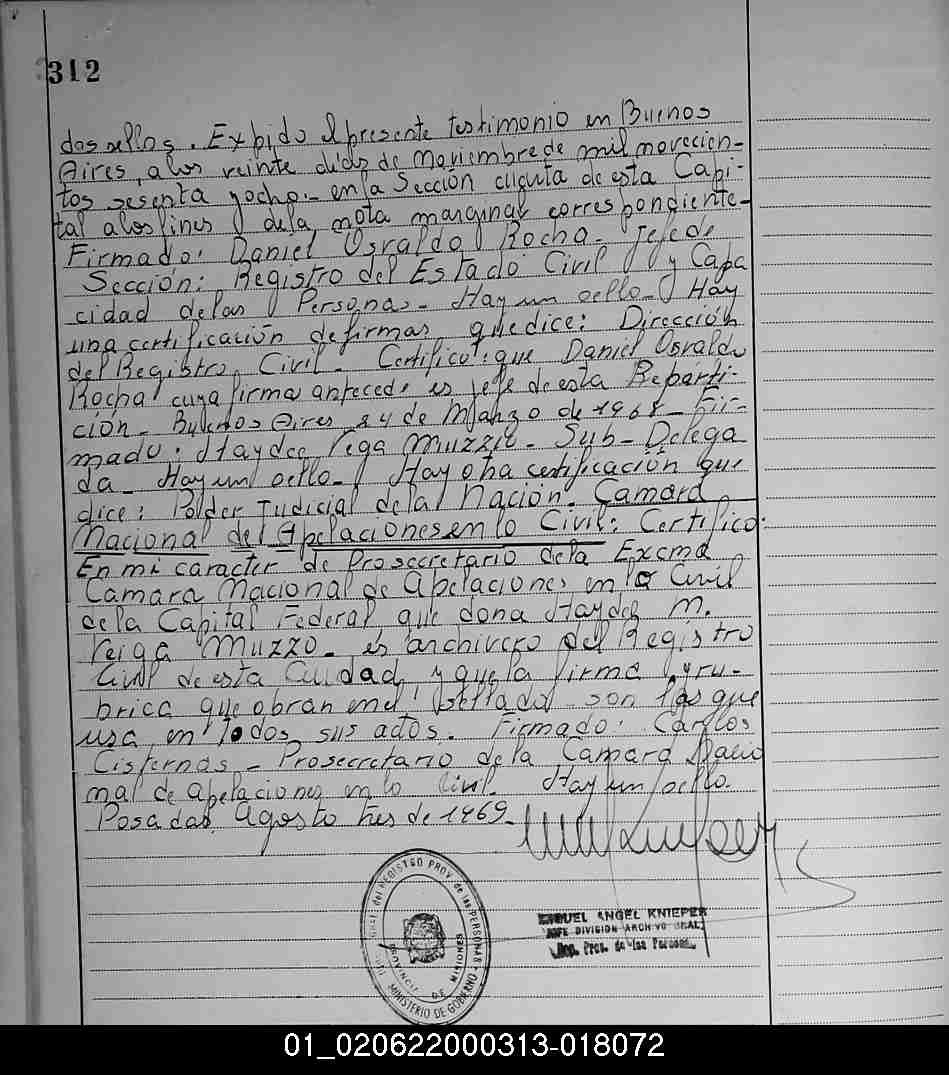 312
dos sellos. Expido el presente testimonio en Buenos
Aires, a los veinte días de Noviembre de mil novecien-
tos sesenta y ocho.- en la Sección cuarta de esta Capi-
tal a los fines de la nota marginal correspondiente-
Firmado: Daniel Osvaldo Rocha. Jefe de
Sección: Registro del Estado Civil y Capa
cidad de las Personas- Hay un sello- Hay
una certificación de firmas que dice: Dirección
del Registro Civil. Certifico: que Daniel Osvaldo
Rocha cuya firma antecede es jefe de esta Reparti-
ción- Buenos Aires 24 de Marzo de 1968- Fir-
mado: Haydee Vega Muzzio- Sub-Delega
da- Hay un sello- Hay otra certificación que
dice: Poder Judicial de la Nación. Camara
Nacional de Apelaciones en lo Civil: Certifico:
En mi caracter de Prosecretario de la Excma
Camara Nacional de Apelaciones en lo Civil
de la Capital Federal que dona Haydee M.
Veiga Muzzo- es archivero del Registro
Civil de esta Ciudad y que la firma y ru-
brica que obran en el sellado son las que
usa en todos sus actos. Firmado: Carlos
Cisternas- Prosecretario de la Camara Nacio
nal de Apelaciones en lo Civil. Hay un sello.
Posadas, Agosto tres de 1969-
REGISTRO PROV. de las PERSONAS
PROVINCIA DE MISIONES
MINISTERIO DE GOBIERNO
MIGUEL ANGEL KNIEPER
JEFE DIVISION ARCHIVO GRAL.
Reg. Prov. de las Personas
01_020622000313-018072